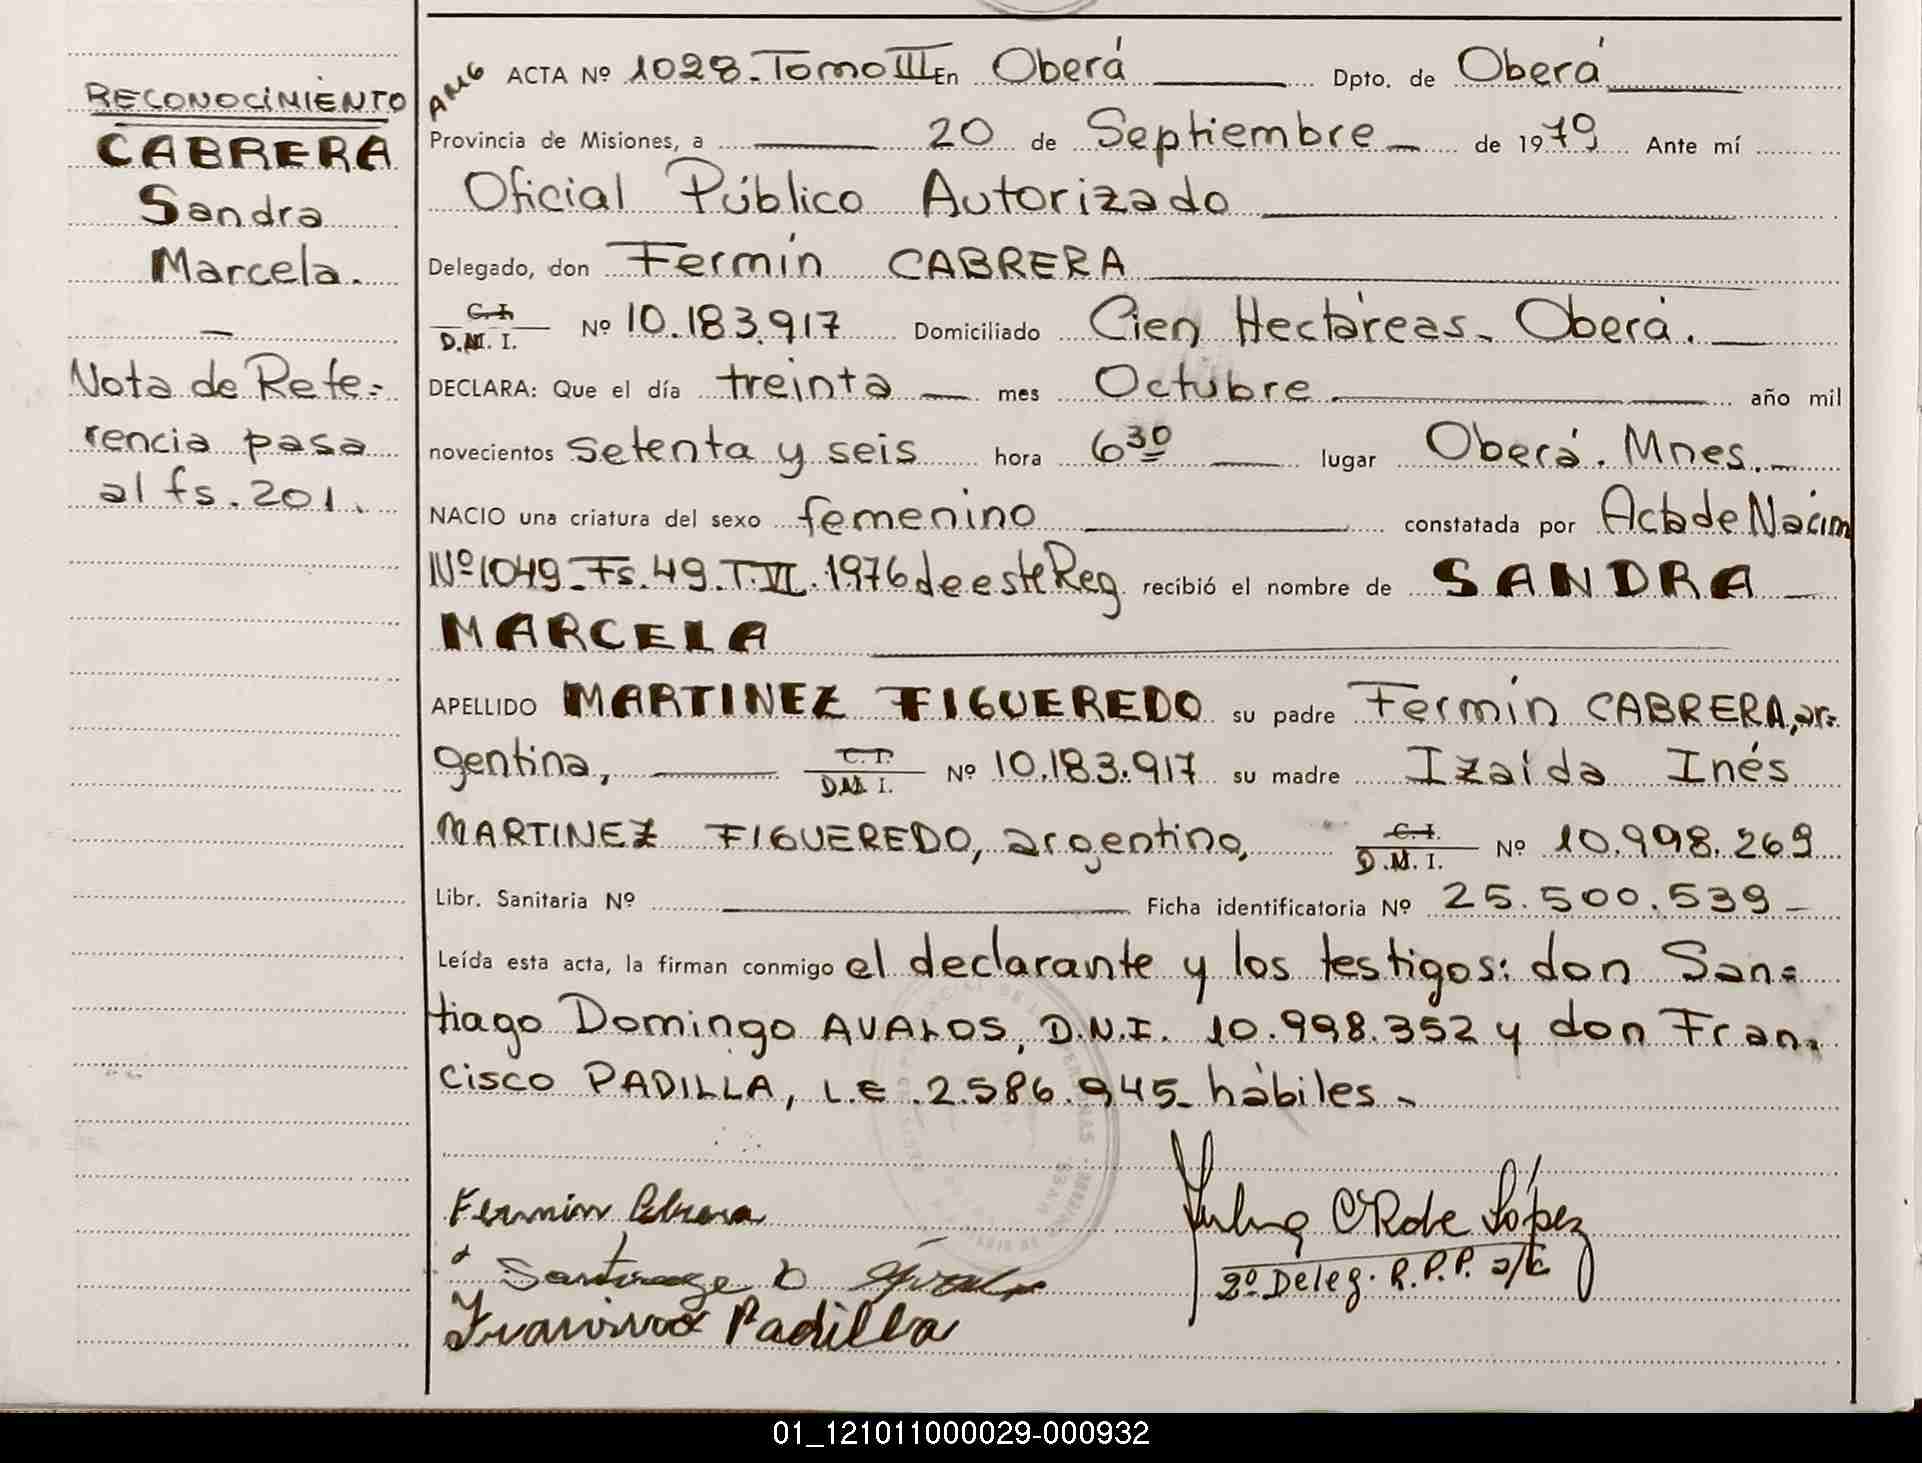 RECONOCIMIENTO
CABRERA
Sandra
Marcela.
Nota de Refe=
rencia pasa
al fs. 201.
AMG
ACTA Nº 1028. Tomo III En Oberá Dpto. de Oberá
Provincia de Misiones, a 20 de Septiembre de 1979 Ante mí
Oficial Público Autorizado
Delegado, don Fermín CABRERA
C.I. D.M.I. Nº 10.183.917 Domiciliado Cien Hectáreas - Oberá.
DECLARA: Que el día treinta mes Octubre año mil
novecientos setenta y seis hora 6 30 lugar Oberá. Mnes.
NACIO una criatura del sexo femenino constatada por Acta de Nacim
Nº 1049 - Fs. 49. T. VI. 1976 de este Reg recibió el nombre de SANDRA
MARCELA
APELLIDO MARTINEZ FIGUEREDO su padre Fermín CABRERA, ar=
gentina, C.I. D.M.I. Nº 10.183.917 su madre Izaida Inés
MARTINEZ FIGUEREDO, argentino, C.I. D.M.I. Nº 10.998.269
Libr. Sanitaria Nº Ficha identificatoria Nº 25.500.539 -
Leída esta acta, la firman conmigo el declarante y los testigos: don San=
tiago Domingo AVALOS, D.N.I. 10.998.352 y don Fran=
cisco PADILLA, L.E. 2.586.945 - hábiles -
Fermin Cabrera
Santiago D
Francisco Padilla
de López
2º Deleg. R.P.P. a/c
01_121011000029-000932